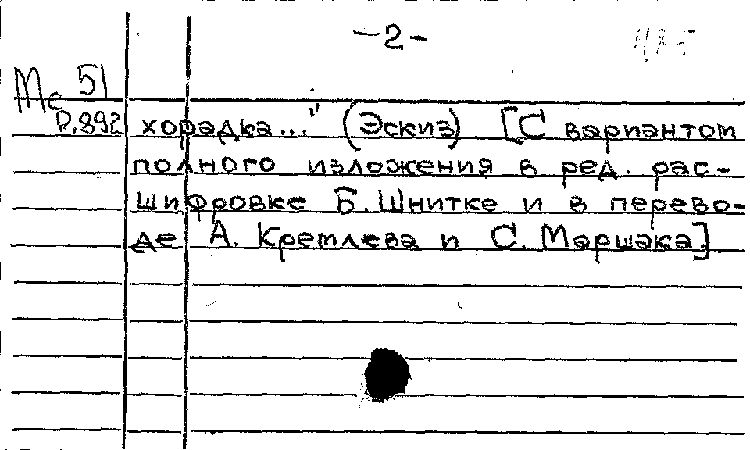 -2-
Мс 51
Р.892
хорадка..." (Эскиз) [С вариантом
полного изложения в ред. рас-
шифровке Б. Шнитке и в перево-
де А. Кретлева и С. Маршака]